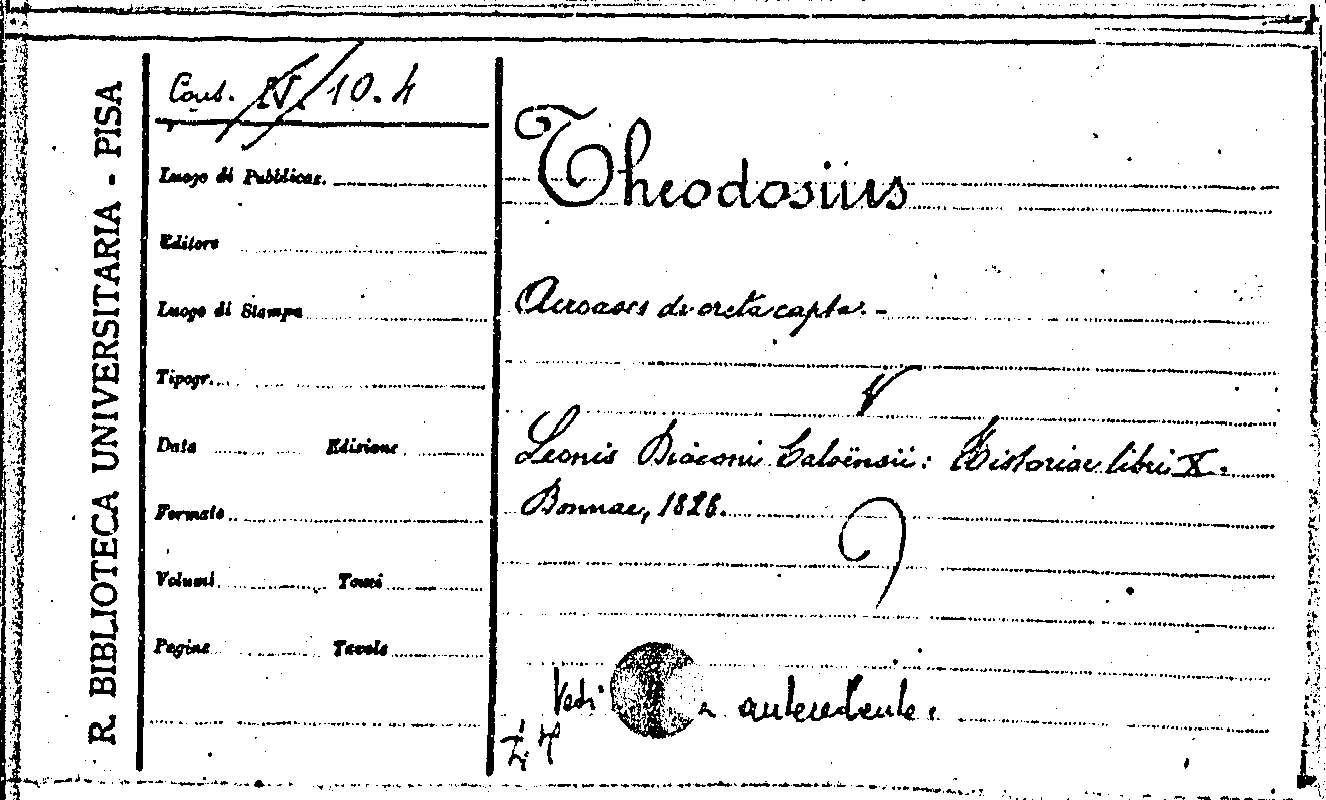 R. BIBLIOTECA UNIVERSITARIA - PISA
Cons. N. 10.4
Luogo di Pubblicaz.
Editore
Luogo di Stampa
Tipogr.
Data Edizione
Formato
Volumi Tomi
Pagine Tavole
Theodosius
Acroases de creta capta. -
Leonis Diaconi Caloënsii: Historiae libri X.
Bonnae, 1828.
Vedi antecedente.